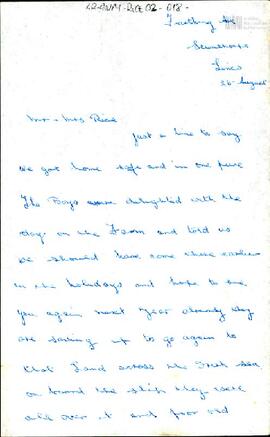 Scunthorpe
Lincs
26 August
Mr + Mrs Rice
Just a line to say
we got home safe and in one piece
The Boys were delighted with the
day on the Farm and told us
we should have come there earlier
in the holidays and hope to see
you again next Year already they
are saving up to go again to
that Land across the Irish sea
on board the ship they were
all over it and poor old